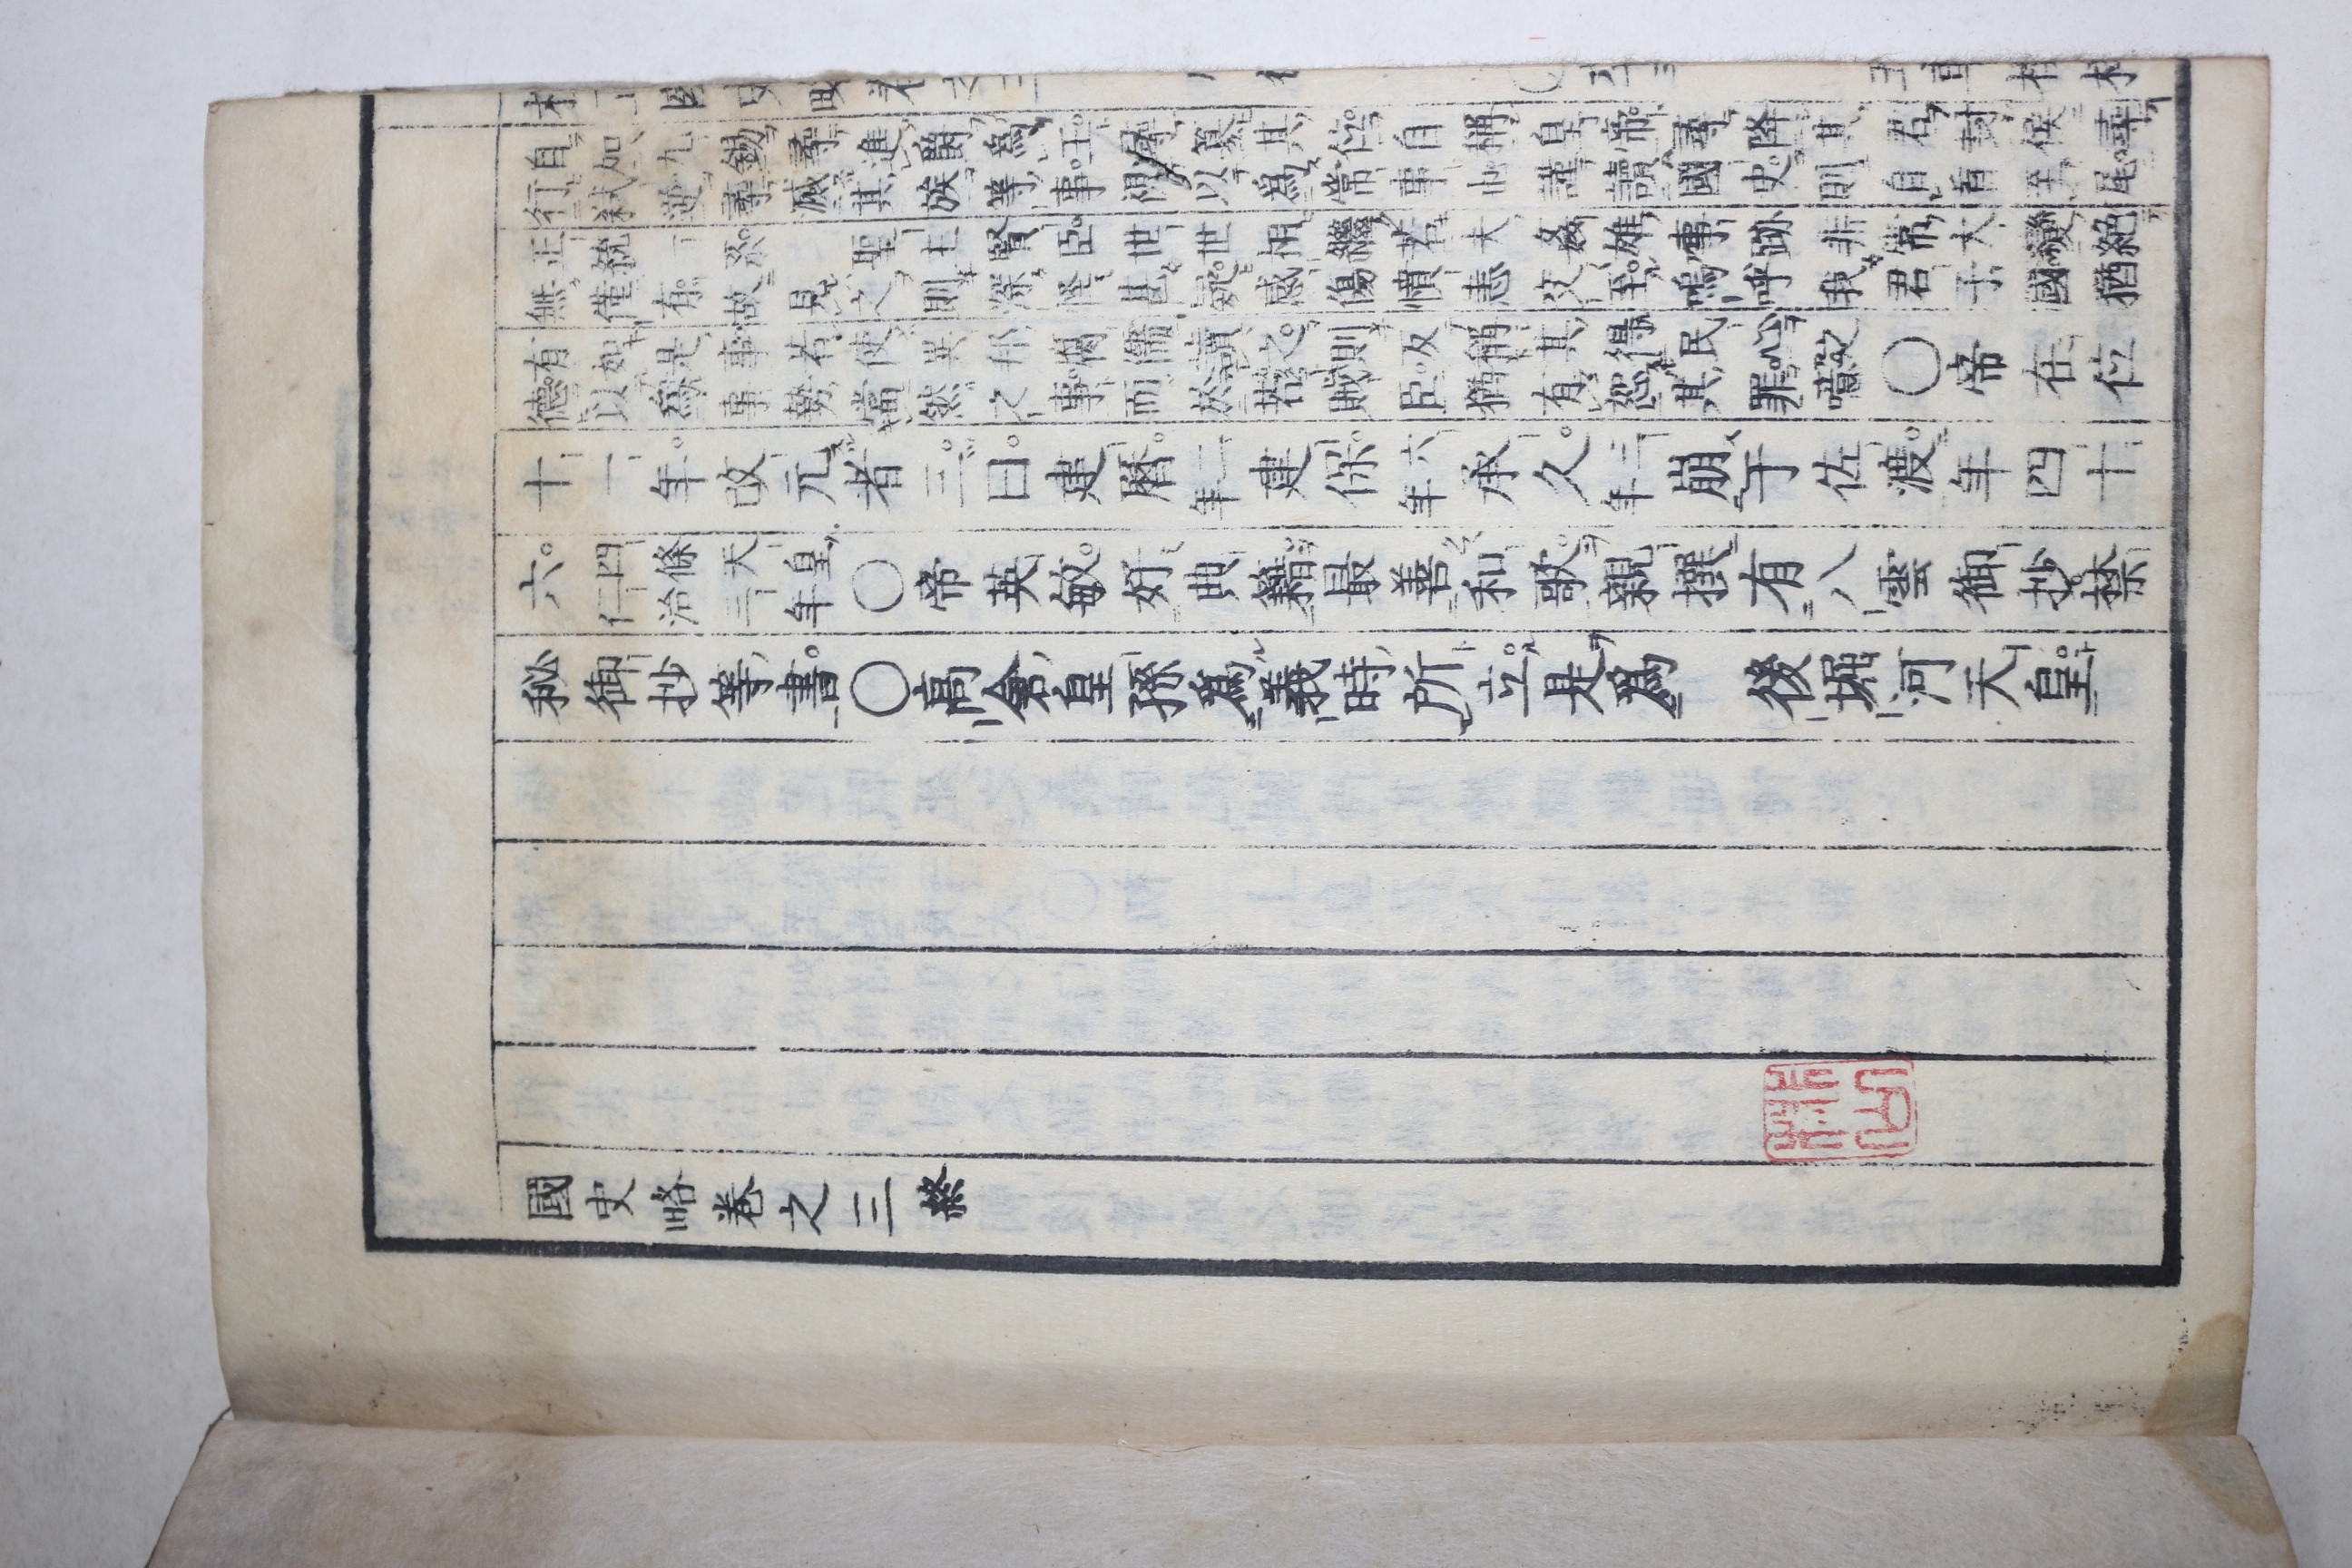 國史略卷之三
自加九錫尋進爵爲王尋簒其位自稱皇帝尋降其君封侯尋
行弒逆尋滅其族等事視以爲常事也謹讀國史則自首至尾
正統一系　聖主賢臣世世相繼若夫姦雄事跡非常大變絕
無僅有故見之則深怪甚疑感傷憤恚交至嗚呼我君子國猶
有如是事若使異邦腐儒讀之則反稱其得民心之
德以爲事勢當然之事而於若賊臣猶有恕其罪噫○帝在位
十一年改元者三曰建曆二年建保六年承久三年崩于佐渡年四十
六。四條天皇仁治三年○帝英敏好典籍最善和歌親撰有八雲御抄禁
秘御抄等書○高倉皇孫爲義時所立是爲　後堀河天皇
國史略卷之三終